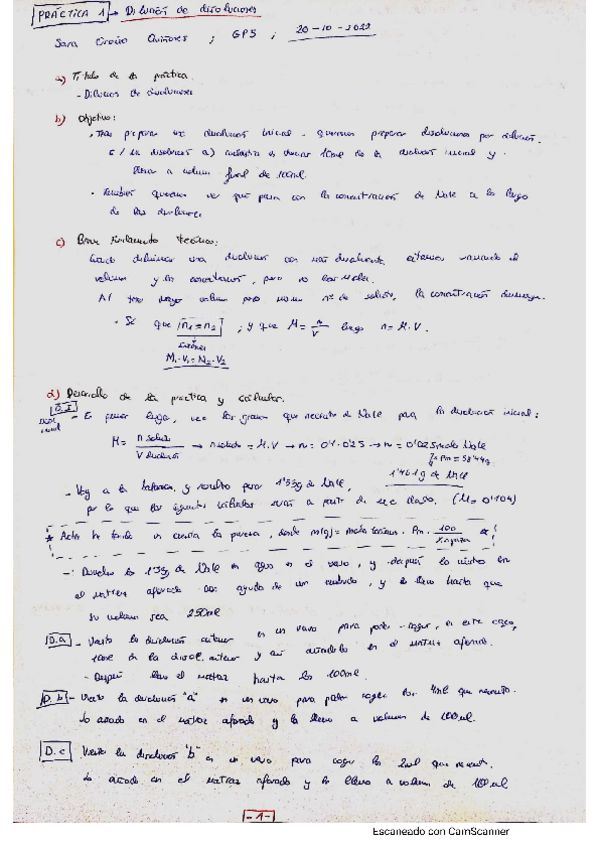 PRÁCTICA 1 → Dilución de disoluciones
Sara Quiñones ; GPS ; 20-10-2022
a) Título de la práctica.
- Dilución de disoluciones
b) Objetivo:
• Tras preparar una disolución inicial queremos preparar disoluciones por dilución.
la disolución a) 10ml de la disolución inicial y
llevar a volumen final de 100ml.
• También queremos ver qué pasa con la concentración de NaCl a lo largo
de las disoluciones
c) Breve fundamento teórico:
Cuando una disolución con más disolvente, estamos variando el
volumen y la concentración, pero no los moles.
Al tener mayor volumen pero mismo nº de soluto, la concentración disminuye.
• Sé que n1 = n2 ; y que M = n/V luego n = M·V.
entonces
M1·V1 = M2·V2
d) Desarrollo de la práctica y cálculos.
D.I
- En primer lugar, veo los gramos que necesito de NaCl para la disolución inicial:
M = n soluto / V disolución → n soluto = M·V → n = 0'1·0'25 → n = 0'025 moles NaCl
Pm = 58'44g
1'461g de NaCl
- Voy a la balanza y resulta peso 1'53g de NaCl,
por lo que los siguientes cálculos serán a partir de ese dato. (M = 0'104)
* Antes he tenido en cuenta la pureza, donde m(g) = moles · Pm · 100 / % riqueza *
- Disuelvo los 1'53g de NaCl en agua en el vaso, y después lo vierto en
el matraz aforado con ayuda de un embudo, y lo llevo hasta que
su volumen sea 250ml
D.a - Vierto la disolución anterior en un vaso para poder coger, en este caso,
10ml de la disol. anterior y así añadirlos en el matraz aforado.
- Después llevo el matraz hasta los 100ml.
D.b - Vierto la disolución "a" en un vaso para poder coger los 4ml que necesito.
Lo añado en el matraz aforado y lo llevo a volumen de 100ml.
D.c Vierto la disolución "b" en un vaso para coger los 2ml que necesito.
Lo añado en el matraz aforado y lo llevo a volumen de 100ml
- 1 -
Escaneado con CamScanner